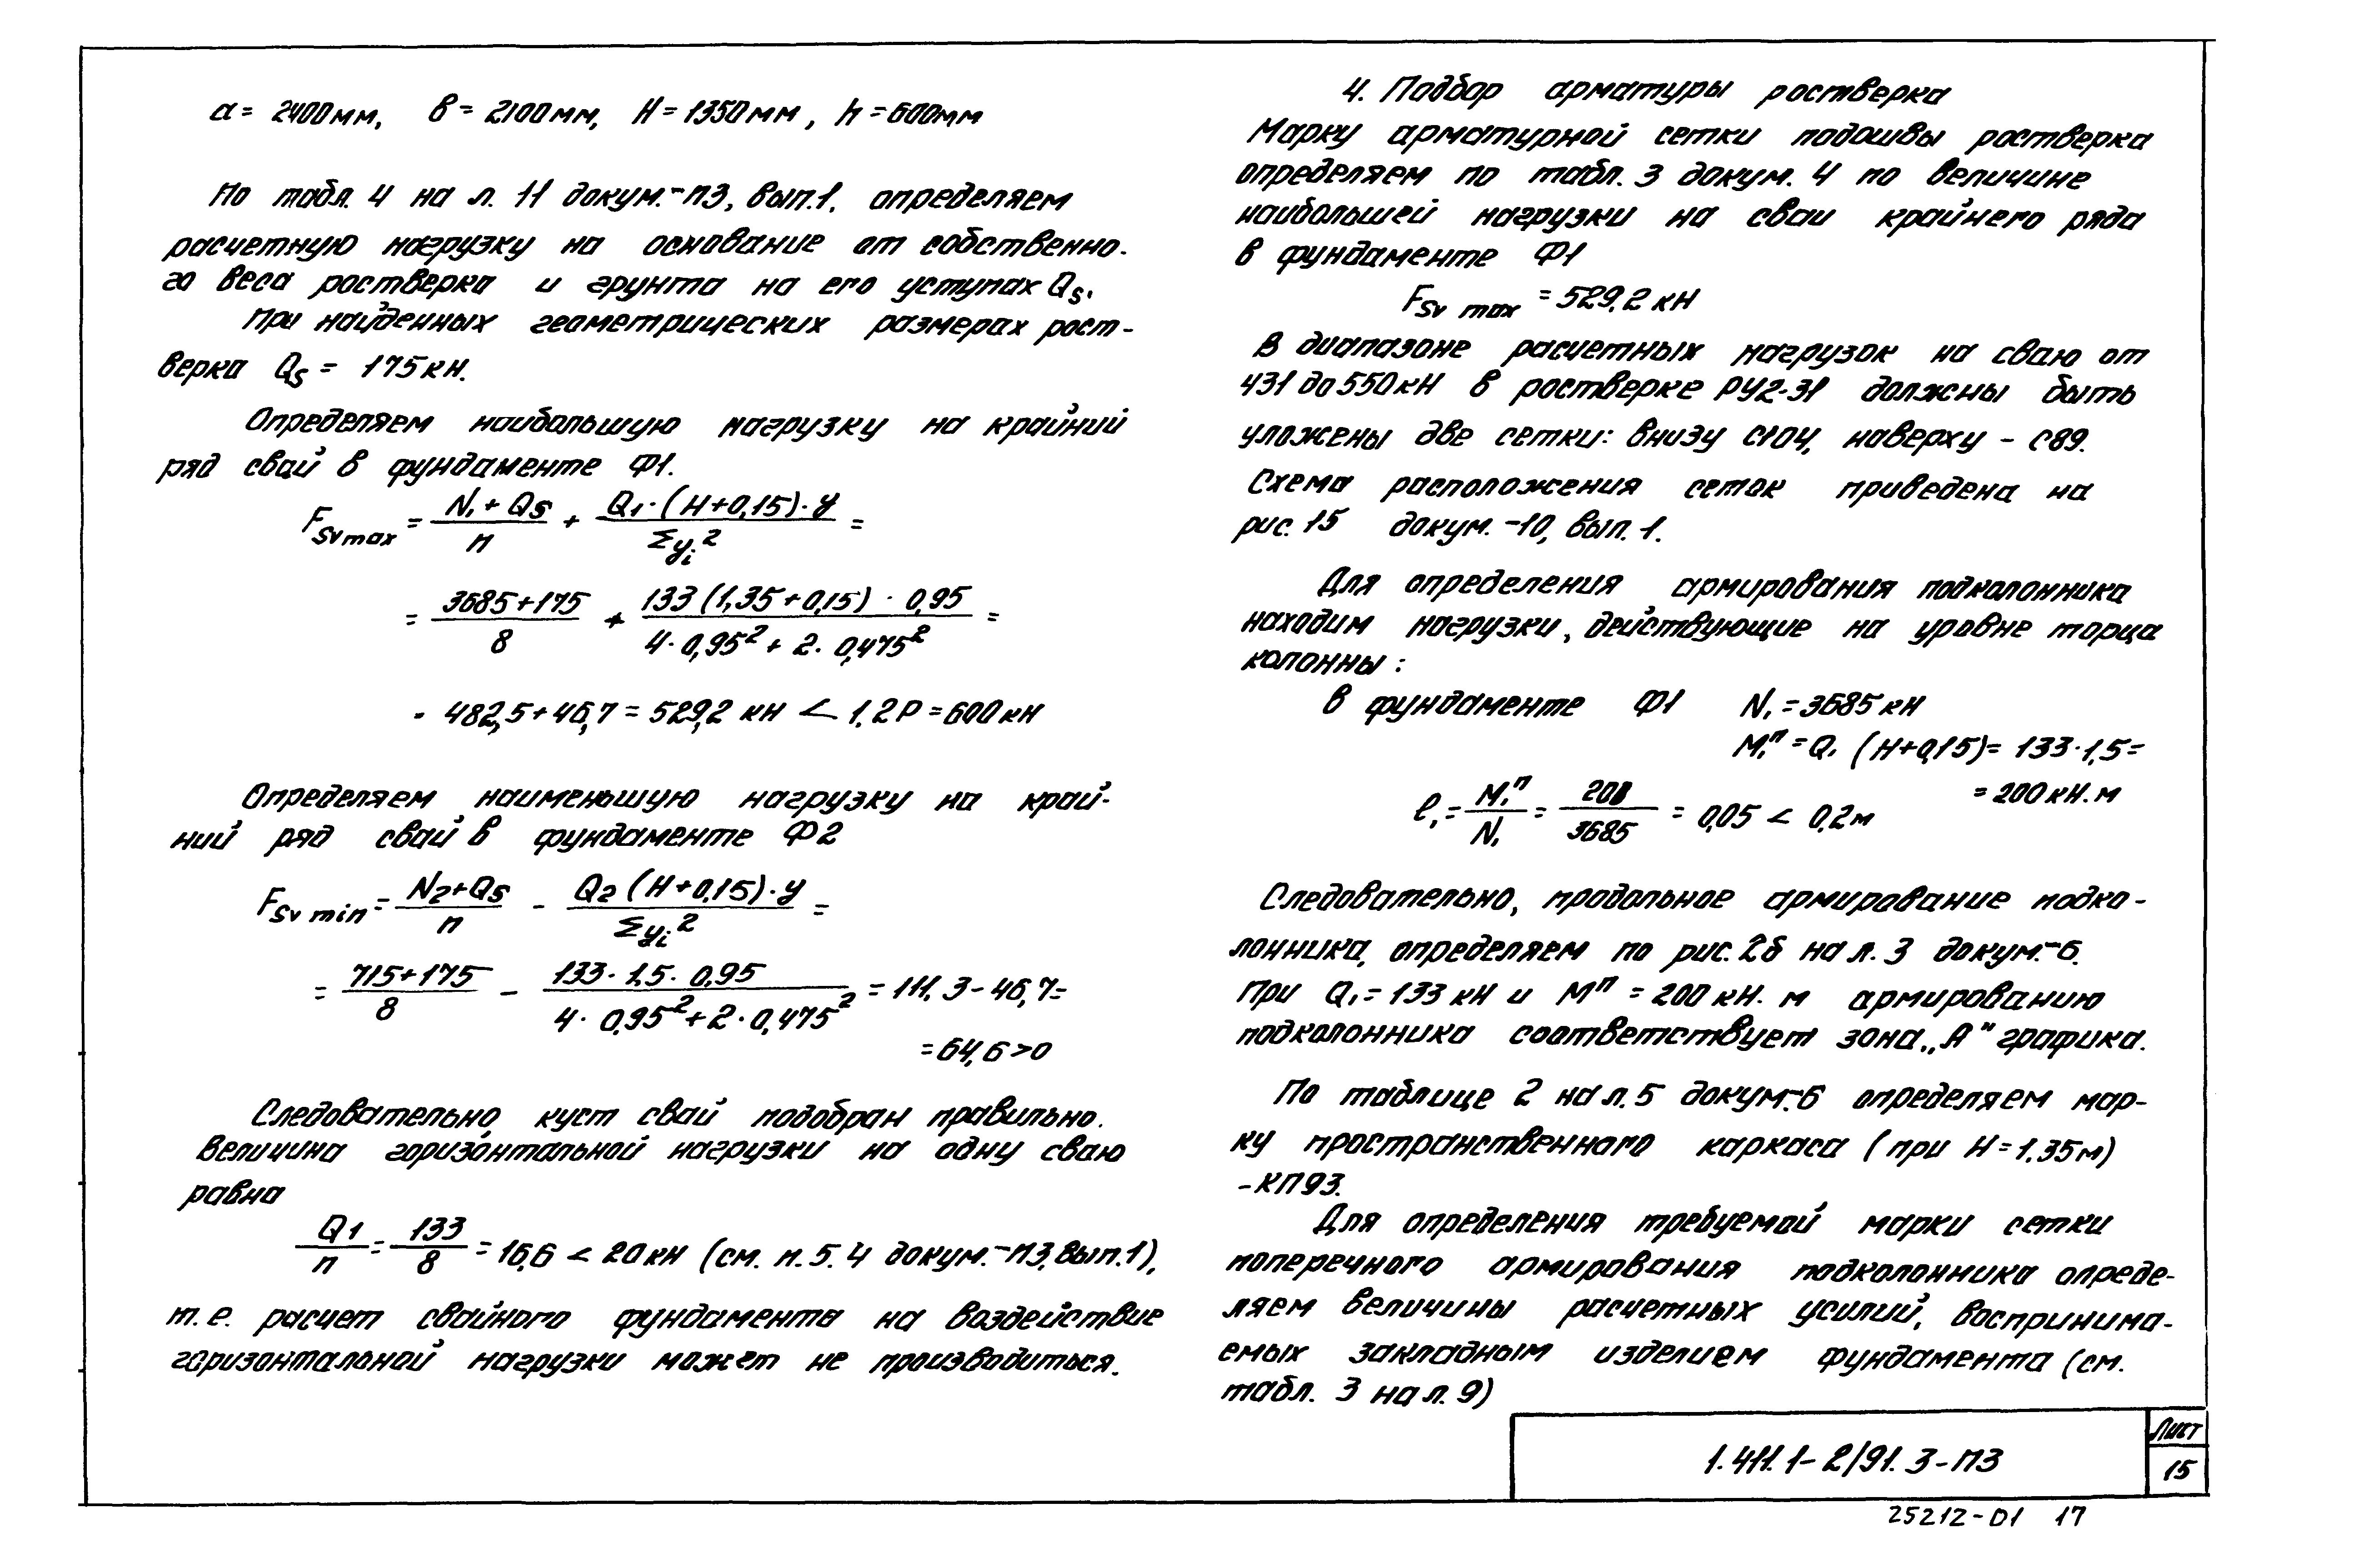 а = 2400мм, в = 2100мм, Н = 1350мм, h = 600мм
По табл. 4 на л. 11 докум.-ПЗ, вып.1. определяем
расчетную нагрузку на основание от собственно-
го веса ростверка и грунта на его уступах Qs.
При найденных геометрических размерах рост-
верка Qs = 175кн.
Определяем наибольшую нагрузку на крайний
ряд свай в фундаменте Ф1.
Fsv max = (N₁ + Qs)/n + (Q₁·(H+0,15)·y)/Σyᵢ² =
= (3685+175)/8 + (133(1,35+0,15)·0,95)/(4·0,95²+2·0,475²) =
= 482,5+46,7 = 529,2 кн < 1.2Р = 600кн
Определяем наименьшую нагрузку на край-
ний ряд свай в фундаменте Ф2
Fsv min = (N₂+Qs)/n - (Q₂(H+0,15)·y)/Σyᵢ² =
= (715+175)/8 - (133·1,5·0,95)/(4·0,95²+2·0,475²) = 111,3-46,7=
= 64,6>0
Следовательно, куст свай подобран правильно.
Величина горизонтальной нагрузки на одну сваю
равна
Q1/n = 133/8 = 16,6 < 20кн (см. п. 5.4 докум.-ПЗ, вып.1),
т.е. расчет свайного фундамента на воздействие
горизонтальной нагрузки может не производиться.
4. Подбор арматуры ростверка
Марку арматурной сетки подошвы ростверка
определяем по табл. 3 докум. 4 по величине
наибольшей нагрузки на сваи крайнего ряда
в фундаменте Ф1
Fsv max = 529,2 кН
В диапазоне расчетных нагрузок на сваю от
431 до 550кН в ростверке РУ2-31 должны быть
уложены две сетки: внизу С104, наверху - С89.
Схема расположения сеток приведена на
рис. 15 докум.-10, вып. 1.
Для определения армирования подколонника
находим нагрузки, действующие на уровне торца
колонны:
в фундаменте Ф1 N₁ = 3685кН
М₁ᴨ = Q₁ (Н+0,15) = 133·1,5=
= 200кН.м
e₁ = М₁ᴨ/N₁ = 200/3685 = 0,05 < 0,2м
Следовательно, продольное армирование подко-
лонника, определяем по рис. 2б на л. 3 докум.-6.
При Q₁ = 133 кН и Мᴨ = 200 кН.м армированию
подколонника соответствует зона „А" графика.
По таблице 2 на л. 5 докум.-6 определяем мар-
ку пространственного каркаса (при Н = 1.35м)
-КП93.
Для определения требуемой марки сетки
поперечного армирования подколонника опреде-
ляем величины расчетных усилий, воспринима-
емых закладным изделием фундамента (см.
табл. 3 на л. 9)
1.411.1-2/91.3-ПЗ
Лист
15
25212-01 17